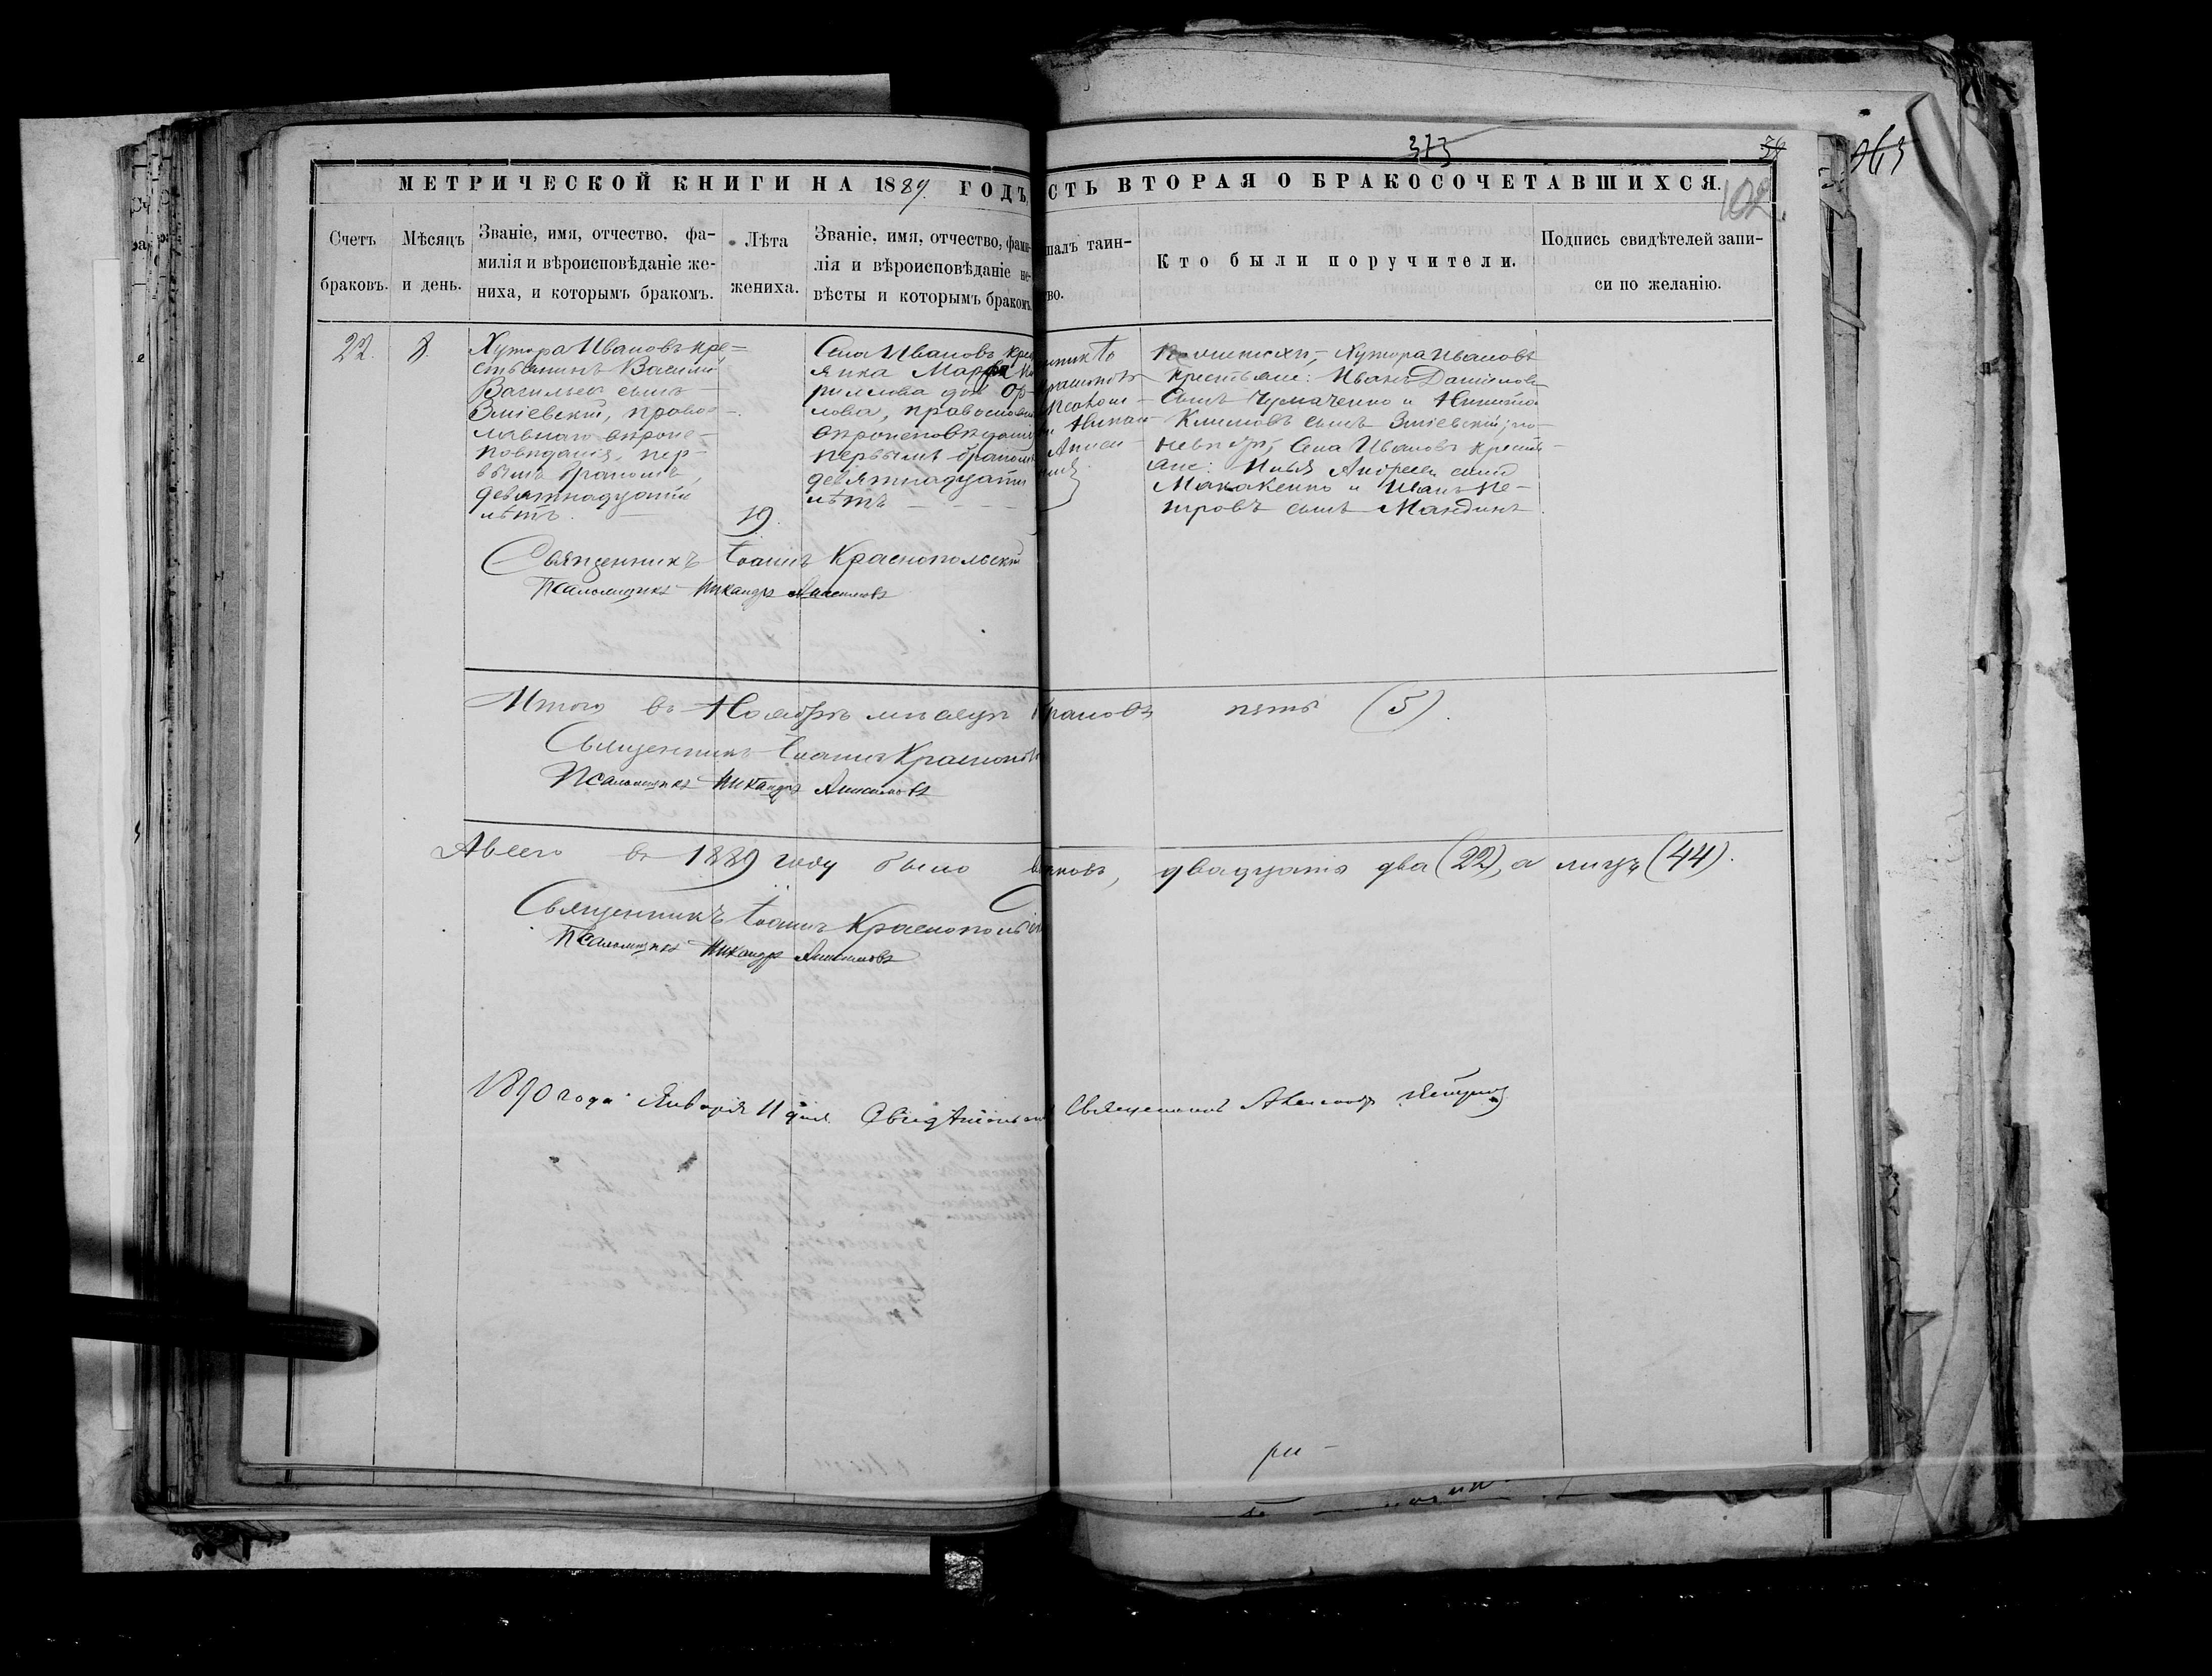 373
102.
МЕТРИЧЕСКОЙ КНИГИ НА 1889 ГОДЪ,
СТЬ ВТОРАЯ О БРАКОСОЧЕТАВШИХСЯ.
Счетъ
браковъ.
Мѣсяцъ
и день.
Званіе, имя, отчество, фа-
милія и вѣроисповѣданіе же-
ниха, и которымъ бракомъ.
Лѣта
жениха.
Званіе, имя, отчество, фами-
лія и вѣроисповѣданіе не-
вѣсты и которымъ бракомъ
шалъ таин-
тво.
Кто были поручители.
Подпись свидѣтелей запи-
си по желанію.
22.
8.
Хутора Ивановъ кре=
стьянинъ Василій
Васильевъ сынъ
Зміевскій, право-
славнаго вѣроис-
повѣданія, пер-
вымъ бракомъ,
девятнадцати
лѣтъ.
19.
Села Ивановъ крес
янка Марфа
рилова доч Ор-
лова, православн
вѣроисповѣданія
первымъ бракомъ
девятнадцати
лѣтъ
По женихѣ, Хутора Ивановъ
крестьяне: Иванъ Даніиловъ
сынъ Чумаченко и Никита
Климовъ сынъ Зміевскій; по
невѣстѣ, Села Ивановъ кресть-
яне: Илья Андреевъ сынъ
Макаренко и Иванъ Пе-
тровъ сынъ Мандинъ.
Священникъ Іоаннъ Краснопольскій
Псаломщикъ Никандръ Анисимовъ
Итого въ Ноябрѣ мѣсяцѣ браковъ пять (5).
Священникъ Іоаннъ Краснополь
Псаломщикъ Никандръ Анисимовъ
А всего въ 1889 году было браковъ, двадцать два (22), а лицъ (44).
Священникъ Іоаннъ Краснопольскій
Псаломщикъ Никандръ Анисимовъ
1890 года Января 11 дня. Свидѣтельст Священникъ Александръ